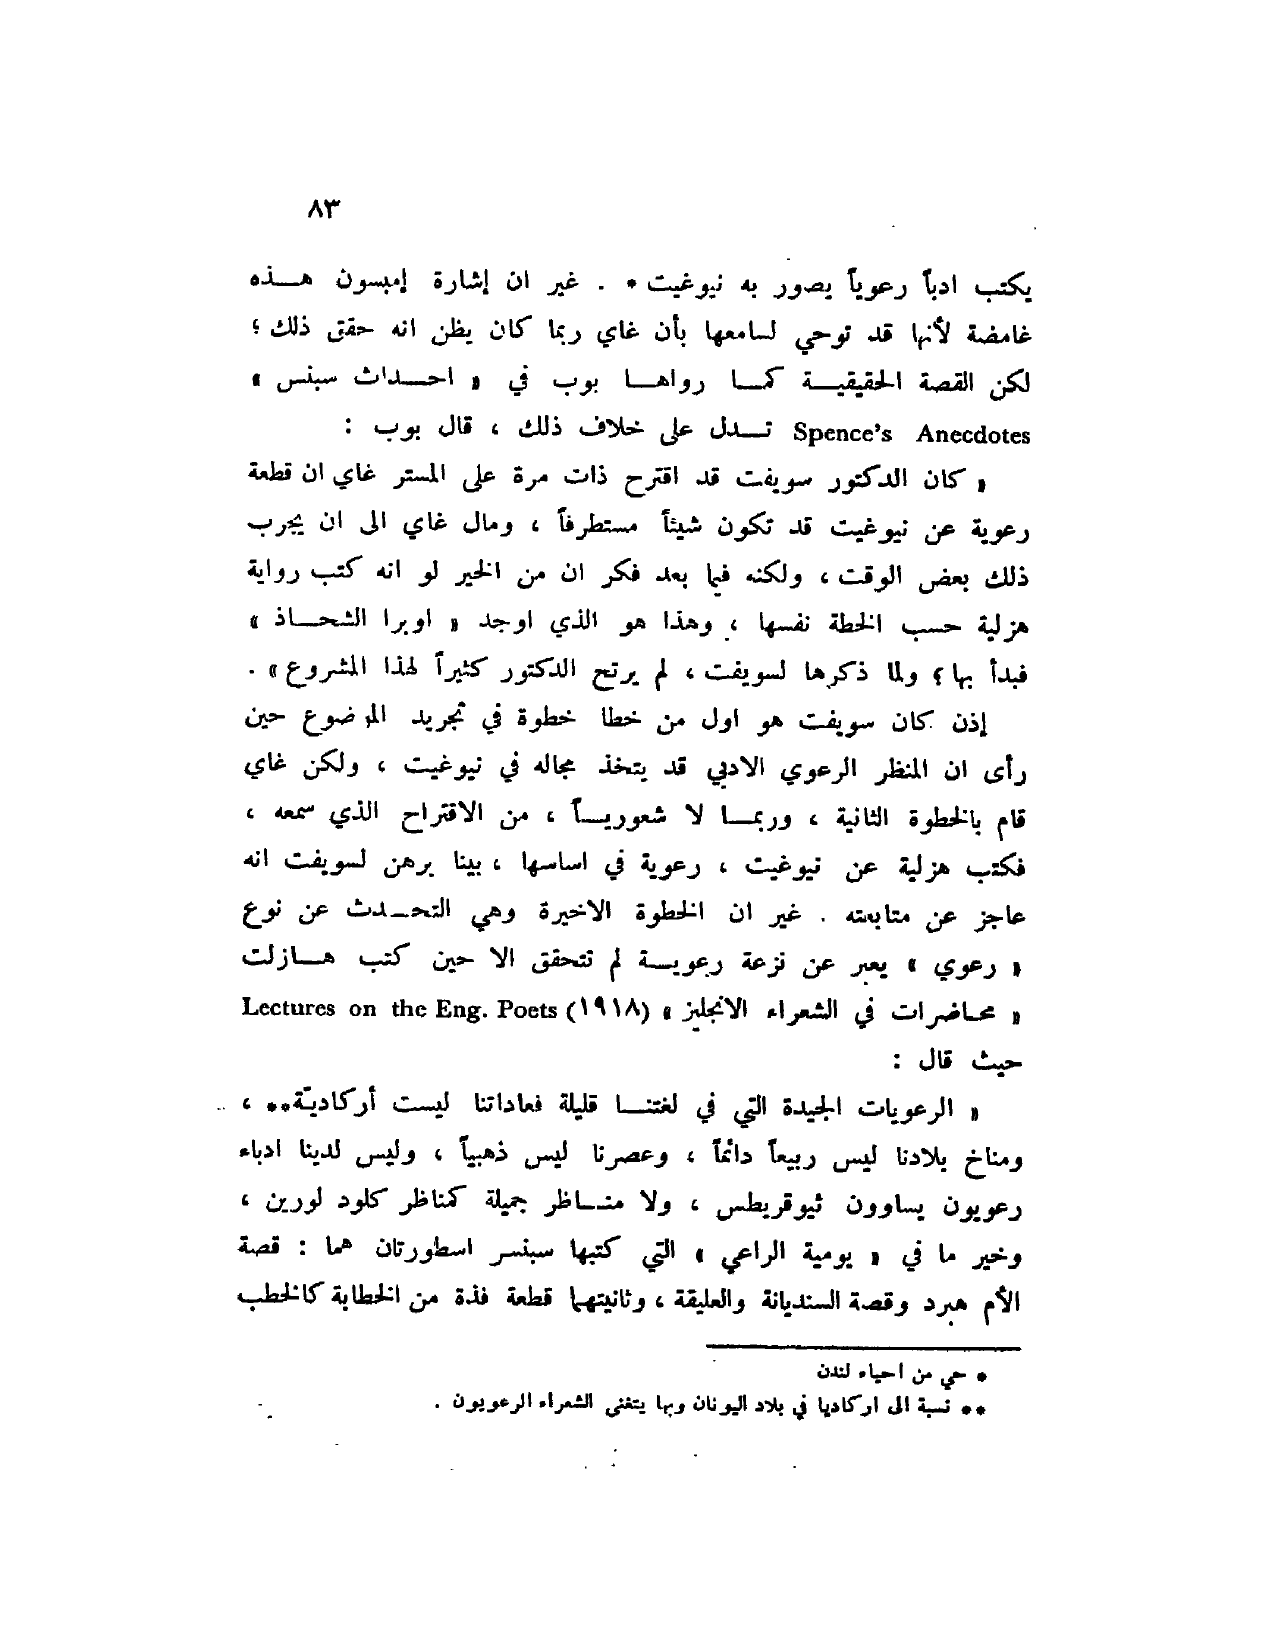 ٨٣
يكتب ادباً رعوياً يصور به نيوغيت * . غير ان إشارة إمبسون هـذه
غامضة لأنها قد توحي لسامعها بأن غاي ربما كان يظن انه حقق ذلك ؛
لكن القصة الحقيقيـة كمـا رواهـا بوب في « احـداث سبنس »
Spence's Anecdotes تـدل على خلاف ذلك ، قال بوب :
« كان الدكتور سويفت قد اقترح ذات مرة على المستر غاي ان قطعة
رعوية عن نيوغيت قد تكون شيئاً مستطرفاً ، ومال غاي الى ان يجرب
ذلك بعض الوقت ، ولكنه فيما بعد فكر ان من الخير لو انه كتب رواية
هزلية حسب الخطة نفسها ، وهذا هو الذي اوجد « اوبرا الشحـاذ »
فبدأ بها ؟ ولما ذكرها لسويفت ، لم يرتح الدكتور كثيراً لهذا المشروع » .
إذن كان سويفت هو اول من خطا خطوة في تجريد الموضوع حين
رأى ان المنظر الرعوي الادبي قد يتخذ مجاله في نيوغيت ، ولكن غاي
قام بالخطوة الثانية ، وربمـا لا شعوريـاً ، من الاقتراح الذي سمعه ،
فكتب هزلية عن نيوغيت ، رعوية في اساسها ، بينا برهن لسويفت انه
عاجز عن متابعته . غير ان الخطوة الاخيرة وهي التحـدث عن نوع
« رعوي » يعبر عن نزعة رعويـة لم تتحقق الا حين كتب هـازلت
« محاضرات في الشعراء الانجليز » (١٩١٨) Lectures on the Eng. Poets
حيث قال :
« الرعويات الجيدة التي في لغتنـا قليلة فعاداتنا ليست أركاديّة** ،
ومناخ بلادنا ليس ربيعاً دائماً ، وعصرنا ليس ذهبياً ، وليس لدينا ادباء
رعويون يساوون ثيوقريطس ، ولا منـاظر جميلة كمناظر كلود لورين ،
وخير ما في « يومية الراعي » التي كتبها سبنسر اسطورتان هما : قصة
الأم هبرد وقصة السنديانة والعليقة ، وثانيتهما قطعة فذة من الخطابة كالخطب
* حي من احياء لندن
** نسبة الى اركاديا في بلاد اليونان وبها يتغنى الشعراء الرعويون .